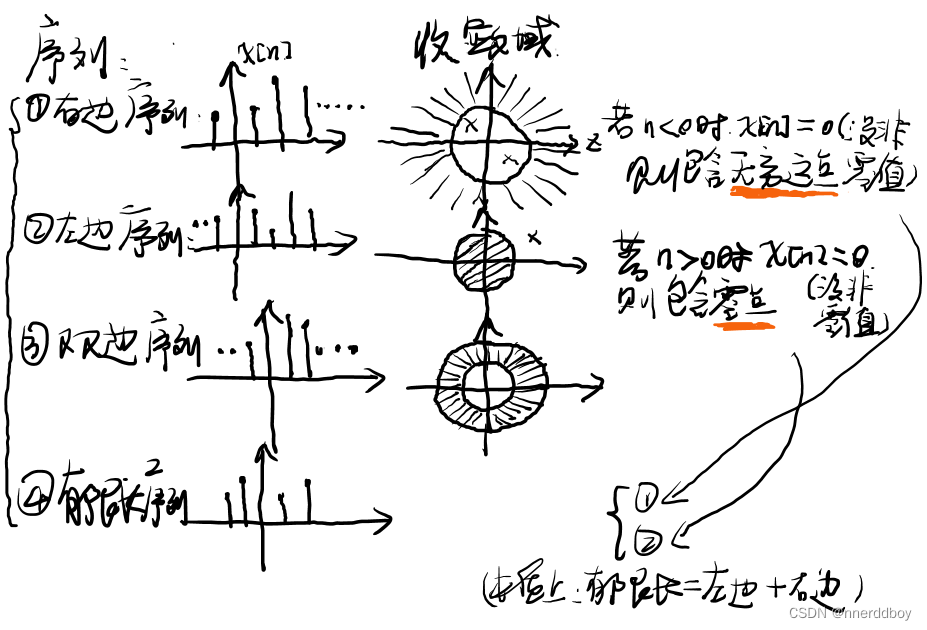 序列:
x[n]
收敛域
①右边序列
若n<0时 x[n]=0(没非
则包含无穷远点 零值)
z
x
x
②左边序列:
x
若n>0时 x[n]=0
则包含零点 (没非
零值)
③双边序列
④有限长序列
①
②
(本质上:有限长=左边+右边)
CSDN @nnerddboy